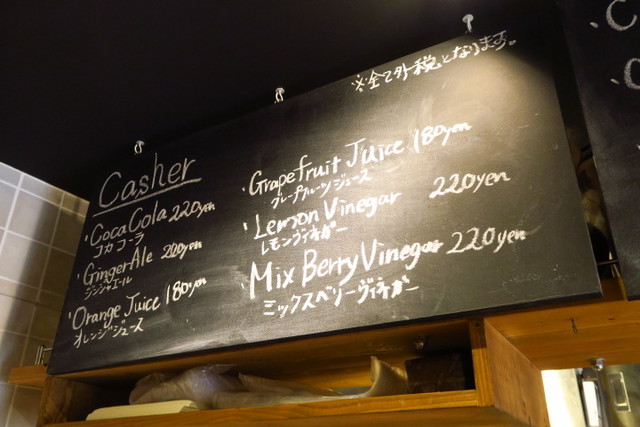 ※全て外税となります。
Casher
・Coca Cola 220yen
コカコーラ
・Ginger Ale 220yen
ジンジャエール
・Orange Juice 180yen
オレンジジュース
・Grapefruit Juice 180yen
グレープフルーツジュース
・Lemon Vinegar 220yen
レモンヴィネガー
・Mix Berry Vinegar 220yen
ミックスベリーヴィネガー